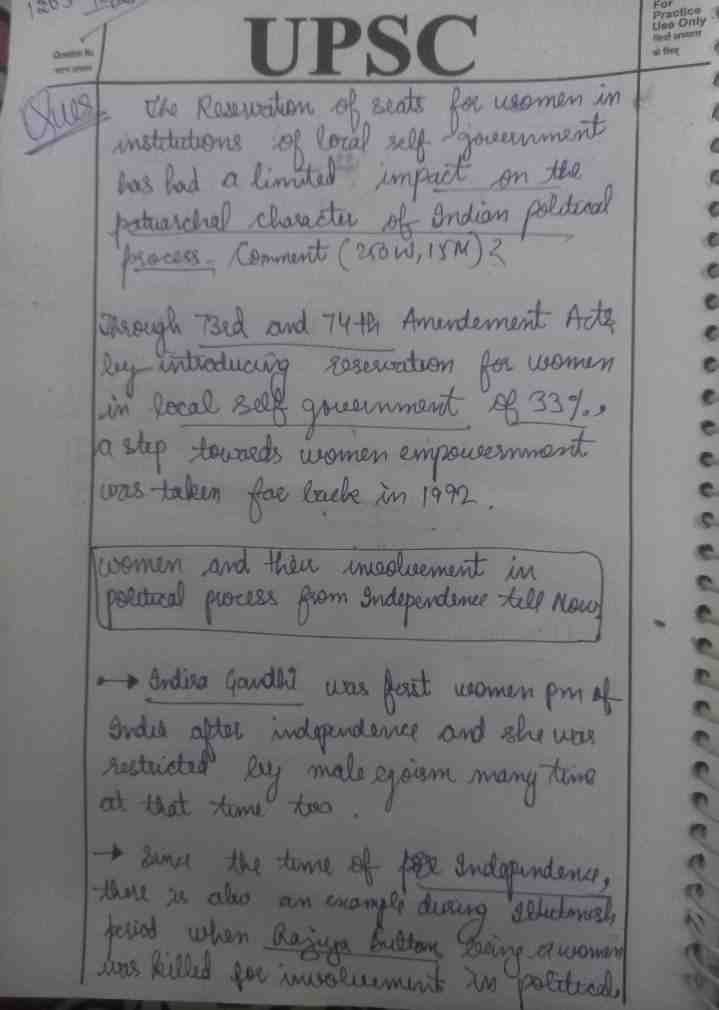 For
Practice
Use Only
UPSC
Question No.
Ques. The Reservation of seats for women in
institutions of local self-government
has had a limited impact on the
patriarchal character of Indian political
process. Comment (250W, 15M)?
Through 73rd and 74th Amendement Acts,
by introducing reservation for women
in local self government of 33%,
a step towards women empowernment
was taken far back in 1992.
women and their involvement in
political process from Independence till Now
→ Indira Gandhi was first women pm of
India after independence and she was
restricted by male egoism many time
at that time too.
→ Since the time of Independence,
there is also an example during Iltutmish
period when Rajiya Sultan being a women
was killed for involvement in political